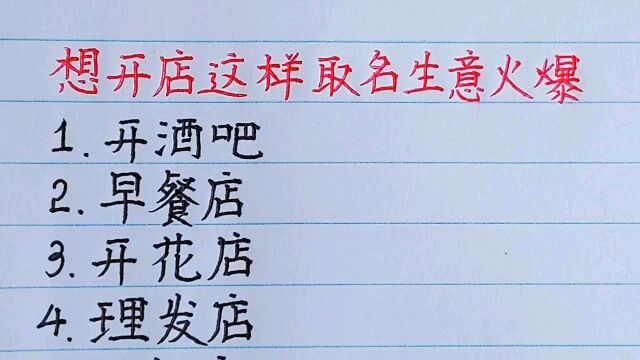 想开店这样取名生意火爆
1. 开酒吧
2. 早餐店
3. 开花店
4. 理发店